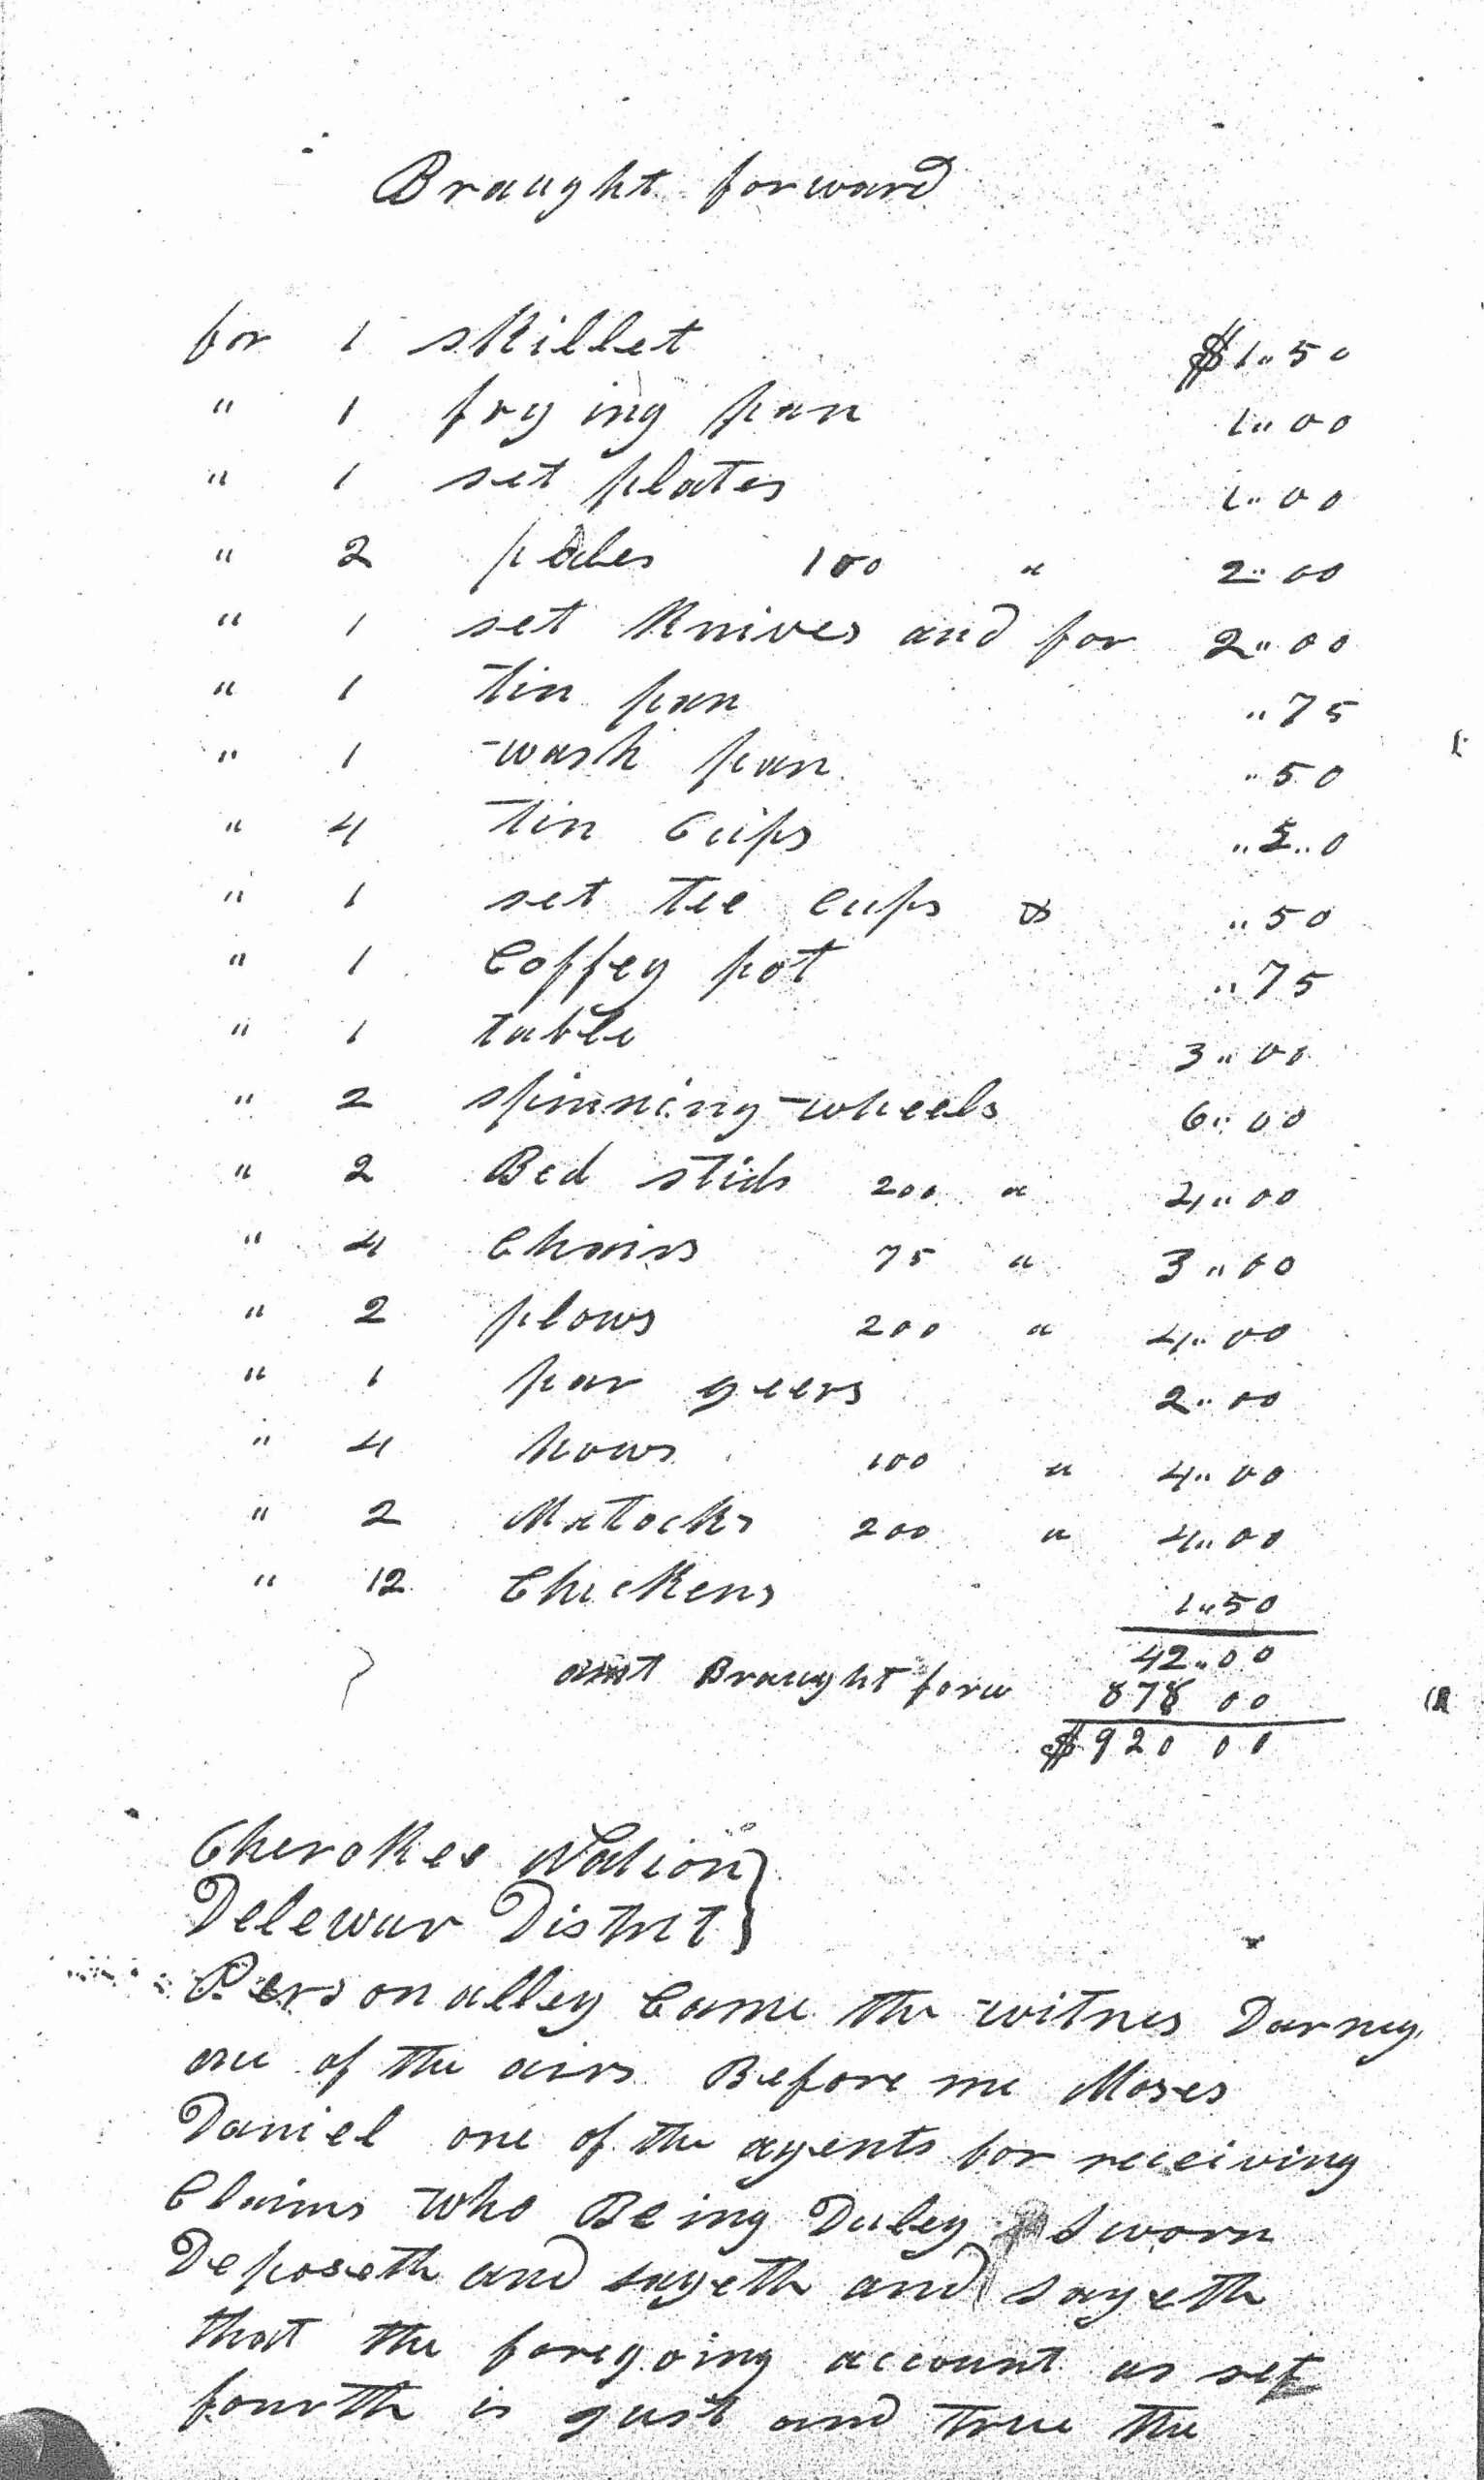 Braught forward
for 1 skillet $1.50
" 1 frying pan 1.00
" 1 set plates 1.00
" 2 100 " 2.00
" 1 set Knives and for 2.00
" 1 tin pan .75
" 1 wash pan .50
" 4 tin Cups .50
" 1 set tee Cups .50
" 1 Coffey pot .75
" 1 table 3.00
" 2 spinning wheels 6.00
" 2 Bed stids 200 " 4.00
" 4 Chairs 75 " 3.00
" 2 plows 200 " 4.00
" 1 par geers 2.00
" 4 hows 100 " 4.00
" 2 Matocks 200 " 4.00
" 12 Chickens 1.50
42.00
amt Braught forw 878 00
$920 00
Cherokee Nation }
Delewar District }
Personalley Came the witnes Darney
one of the airs Before me Moses
Daniel one of the agents for receiving
Claims who Being Duley Sworn
Deposeth and sayeth and sayeth
that the foregoing account as set
fourth is gust and True the